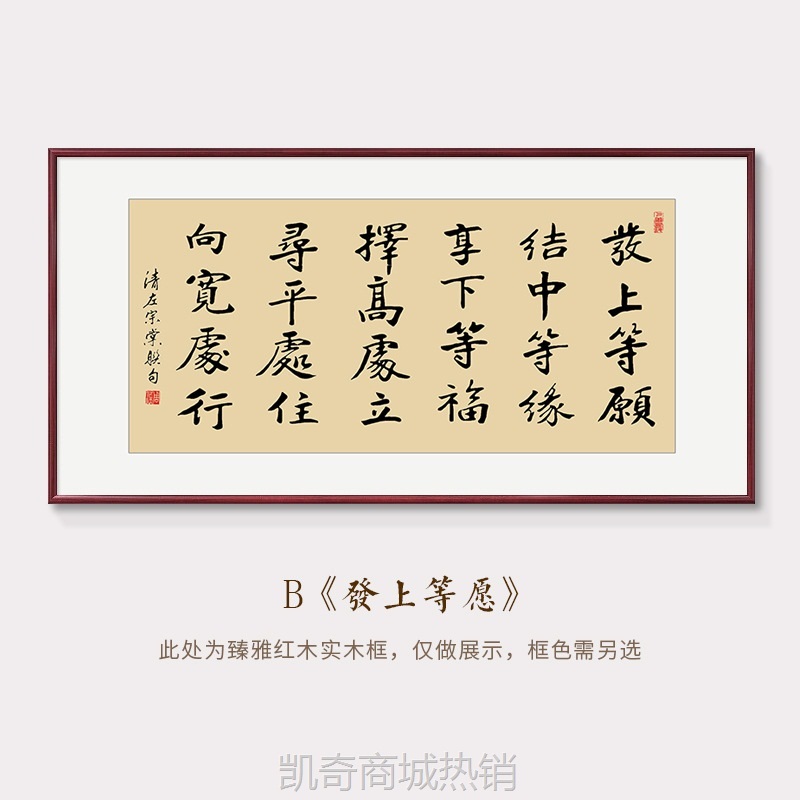 發上等願
结中等缘
享下等福
擇高處立
尋平處住
向寬處行
清左宗棠联句
B《發上等愿》
此处为臻雅红木实木框，仅做展示，框色需另选
凯奇商城热销